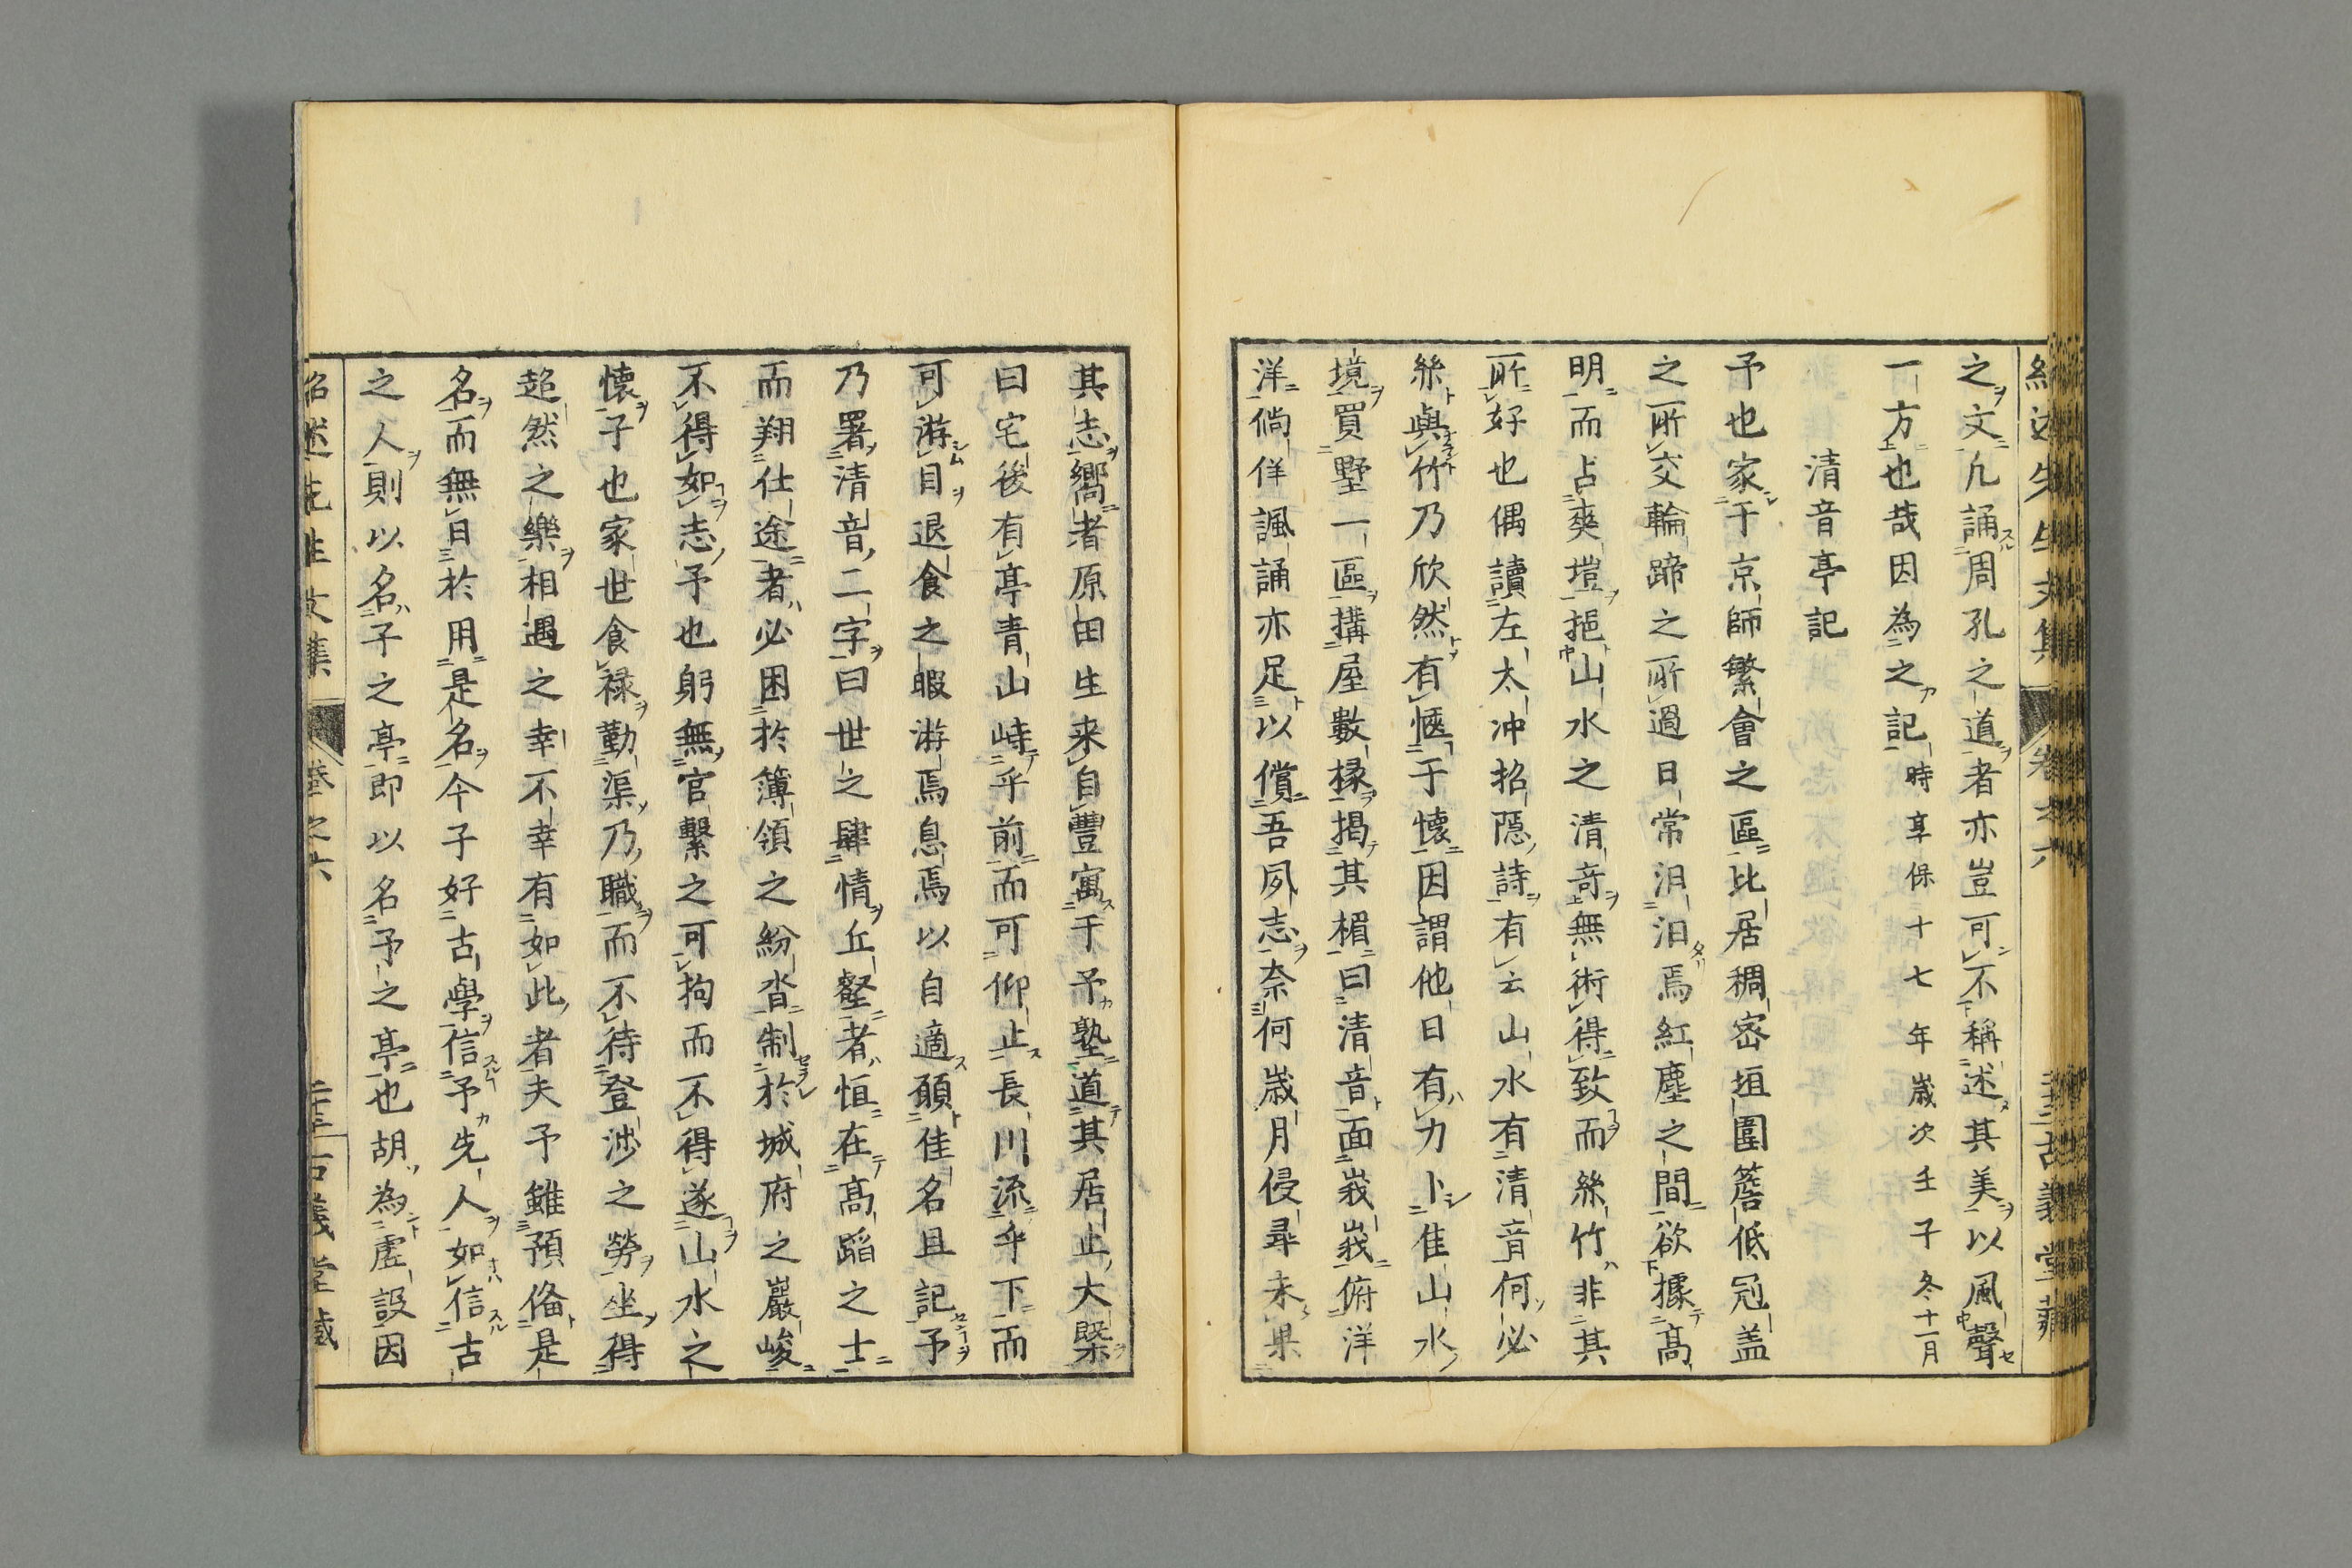 之文凢誦周孔之道者亦豈可不稱述其美以風聲
一方也哉因為之記時享保十七年歳次壬子冬十一月
清音亭記
予也家于京師繁會之區比居稠宻垣圍簷低冠盖
之所交輪蹄之所過日常汨汨焉紅塵之間欲據髙
明而占爽塏挹山水之清音無術得致而絲竹非其
所好也偶讀左太冲招隠詩有云山水有清音何必
絲與竹乃欣然有愜于懐因謂他日有力卜佳山水
境買墅一區搆屋數椽掲其楣曰清音面峩峩俯洋
洋倘佯諷誦亦足以償吾夙志奈何歳月侵尋未果
其志嚮者原田生来自豐寓于予塾道其居止大槩
曰宅後有亭青山峙乎前而可仰止長川流乎下而
可游目退食之暇游焉息焉以自適願佳名且記予
乃署清音二字曰世之肆情丘壑者恒在髙蹈之士
而翔仕途者必困於簿領之紛沓制於城府之巖峻
不得如志予也躬無官繫之可拘而不得遂山水之
懐子也家世食禄勤渠乃職而不待登渉之勞坐得
超然之樂相遇之幸不幸有如此者夫予雖預俻是
名而無日於用是名今子好古學信予先人如信古
之人則以名子之亭即以名予之亭也胡為虚設因
紹述先生文集 卷之六 古義堂藏